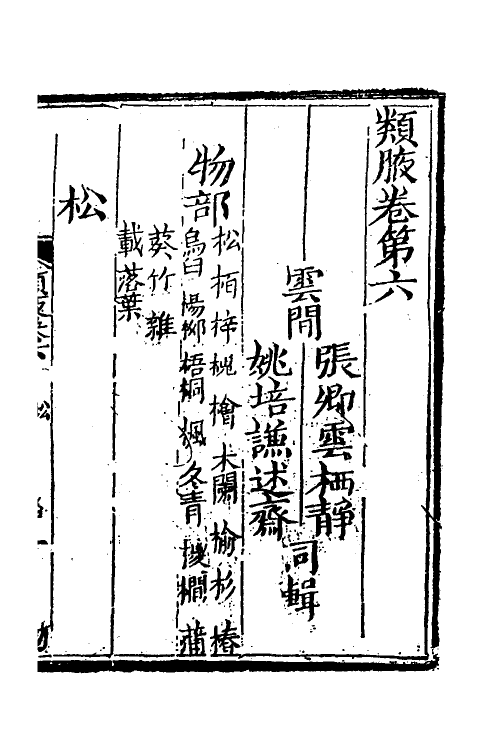 類腋卷第六
雲間
張卿雲栖靜
姚培謙述齋
同輯
物部
松 栢 梓 槐 檜 木蘭 榆 杉 椿
烏臼 楊柳 梧桐 楓 冬青 椶櫚 蒲
葵 竹 雜
載落葉
松
松